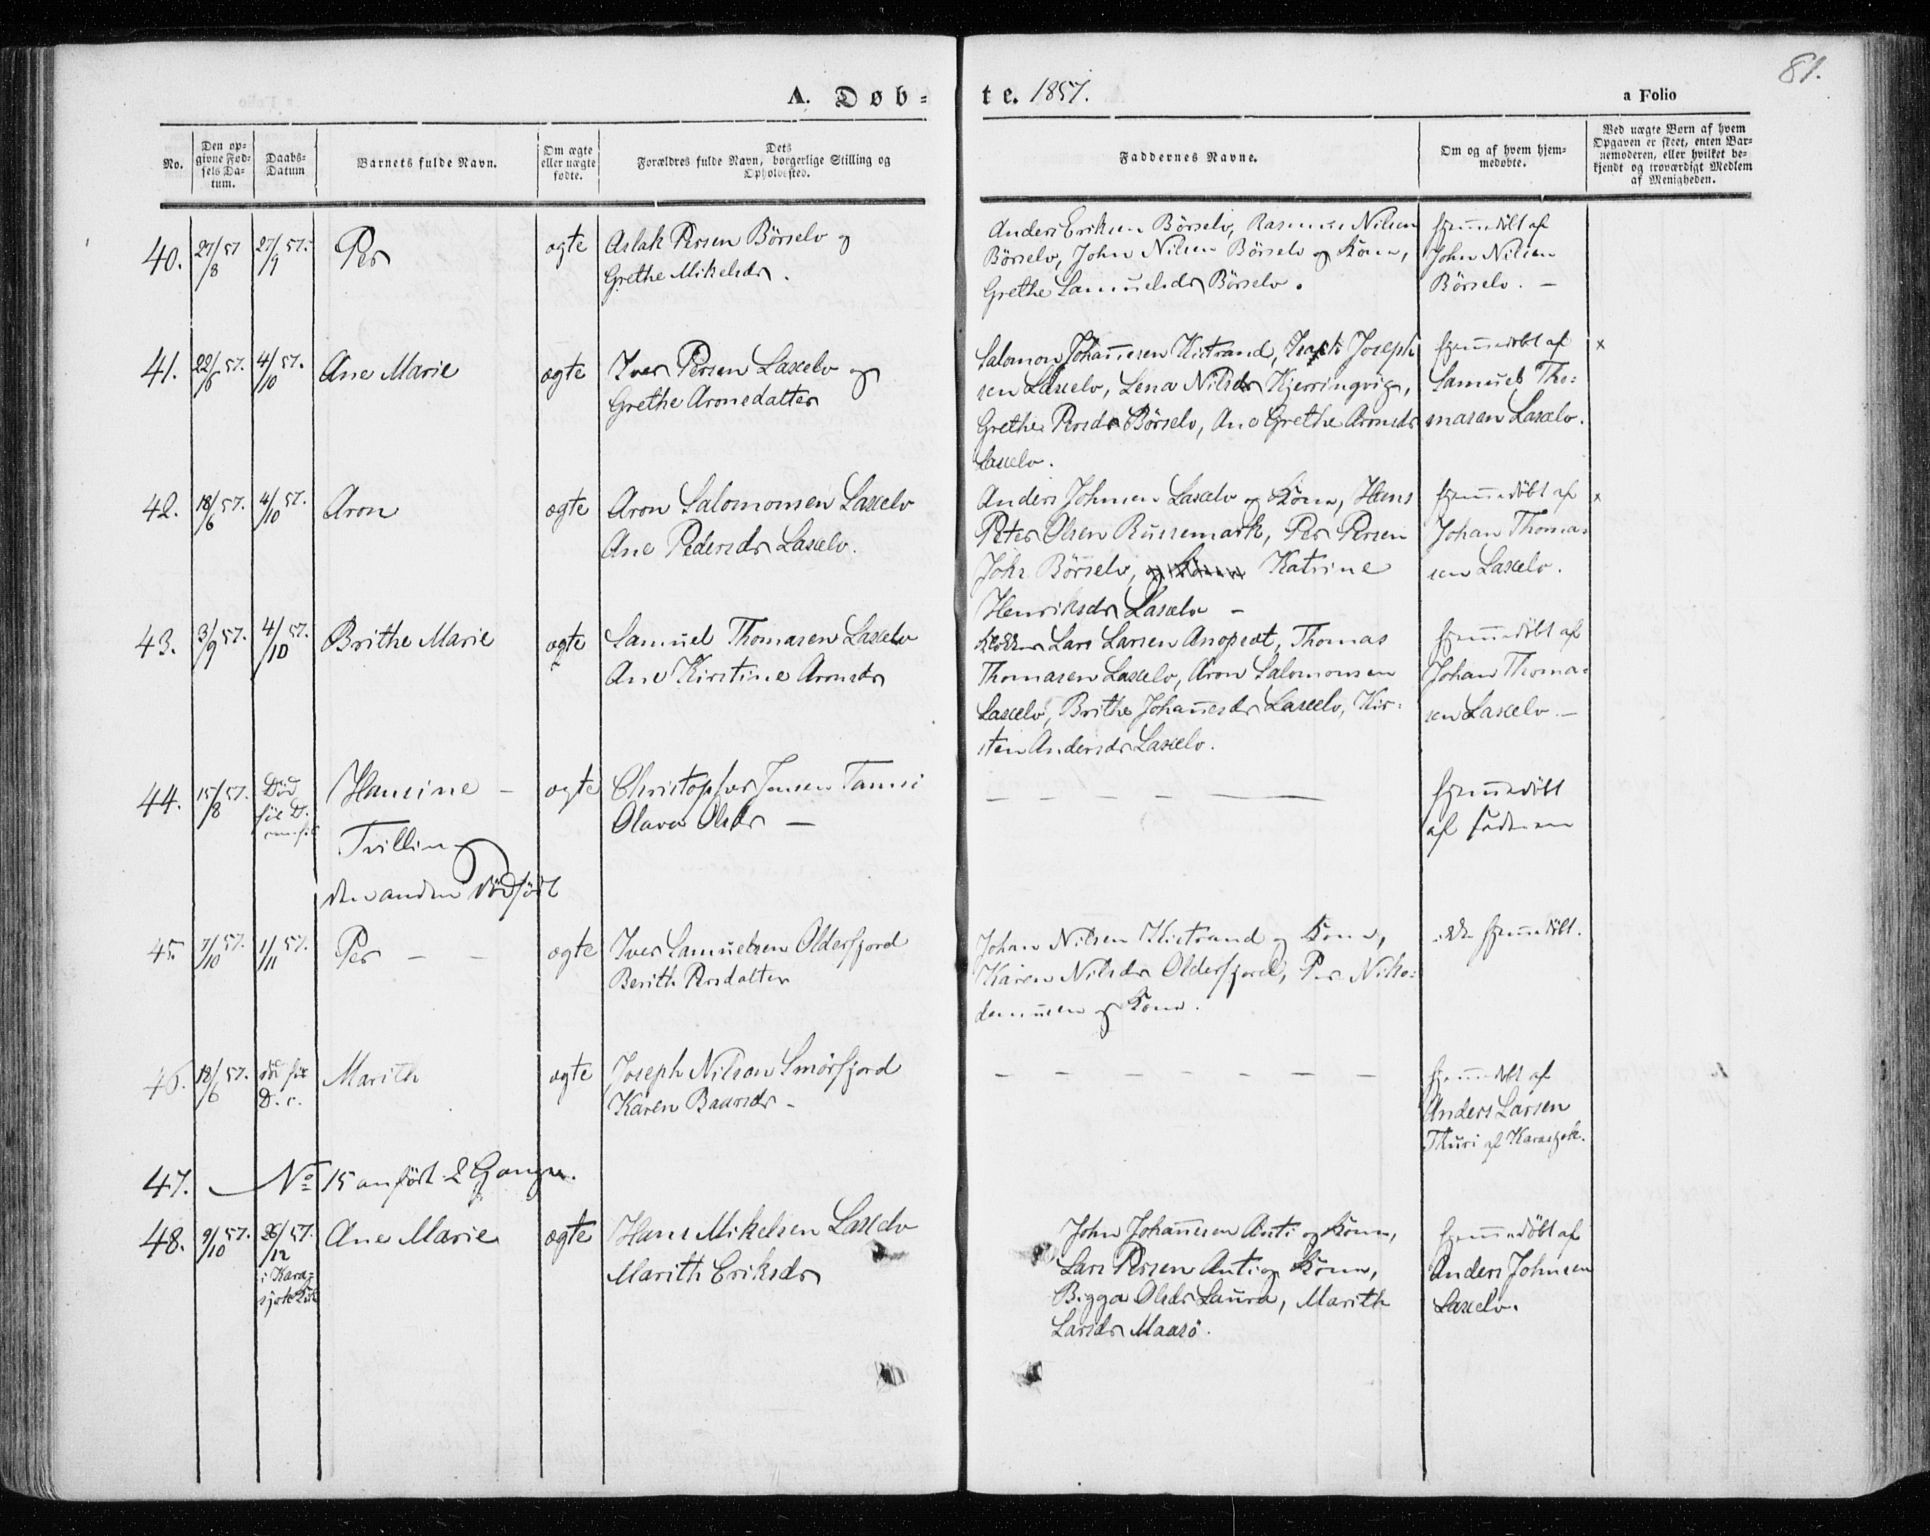 81.
A. Døb-
te. 1857.
a Folio
No.
Den op-
givne Fød-
sels Da-
tum.
Daabs-
Datum
Barnets fulde Navn.
Om ægte
eller uægte
fødte.
Dets
Forældres fulde Navn, borgerlige Stilling og
Opholdssted.
Faddernes Navne.
Om og af hvem hjem-
medøbte.
Ved uægte Børn af hvem
Opgaven er skeet, enten Bar-
nemoderen, eller hvilket be-
kjendt og troværdigt Medlem
af Menigheden.
40. 27/8 57 27/9 57. Per ægte Aslak Persen Börselv og
Grethe Mikelsdr.
Anders Eriksen Börselv, Rasmus Nilsen
Börselv, John Nilsen Börselv og Kone,
Grethe Samuelsdr Börselv.
hjemmedöbt af
John Nilsen
Börselv. –
41. 22/6 57. 4/10 57. Ane Marie ægte Iver Persen Laxelv og
Grethe Aronsdatter
Salomon Johannesen Kistrand, Isack Joseph
sen Laxelv, Lena Nilsdr Kjerringvig,
Grethe Persdr Börselv, Ane Grethe Aronsdr
Laxelv.
hjemmedöbt af
Samuel Tho=
masen Laxelv.
x
42. 18/6 57. 4/10 57. Aron ægte Aron Salomonsen Laxelv
Ane Pedersdr Laxelv.
Anders Johnsen Laxelv og Kone, Hans
Peter Olsen Russemark, Per Persen
Johr Börselv, og Kone Katrine
Henriksdr Laxelv –
hjemmedöbt af
Johan Thoma=
sen Laxelv.
x
43. 3/9 57. 4/10 57. Brithe Marie ægte Samuel Thomasen Laxelv
Ane Kirstine Aronsdr
Lars Larsen Anopset, Thomas
Thomasen Laxelv, Aron Salomonsen
Laxelv, Brithe Johannesdr Laxelv, Kir=
sten Andersdr Laxelv.
hjemmedöbt af
Johan Thoma=
sen Laxelv. –
44. 15/8 57. Död
för D.
Hansine –
Tvilling
den anden dödfödt
ægte Christopher Jensen Tanni
Olava Olsdr –
hjemmedöbt
af Faderen
45. 7/10 57. 1/11 57. Per – – ægte Iver Samuelsen Olderfjord
Berith Persdatter
Johan Nilsen Kistrand og Kone,
Karen Nilsdr Olderfjord, Per Niko=
demusen og Kone.
ikke hjemmedöbt.
46. 18/6 57. död för
D. c.
Marith ægte Joseph Nilsen Smörfjord
Karen Baarsdr –
hjemmedöbt af
Anders Larsen
Thuri af Karasjok.
47. No 15 anfört 2 Gange.
48. 9/10 57. 26/12 57.
i Kara=
sjok
Ane Marie ægte Hans Mikelsen Laxelv
Marith Eriksdr
John Johannesen Anti og Kone,
Lars Persen Anti og Kone,
Bigga Olsdr Laura, Marith
Larsdr Maasö.
hjemmedöbt af
Anders Johnsen
Laxelv.